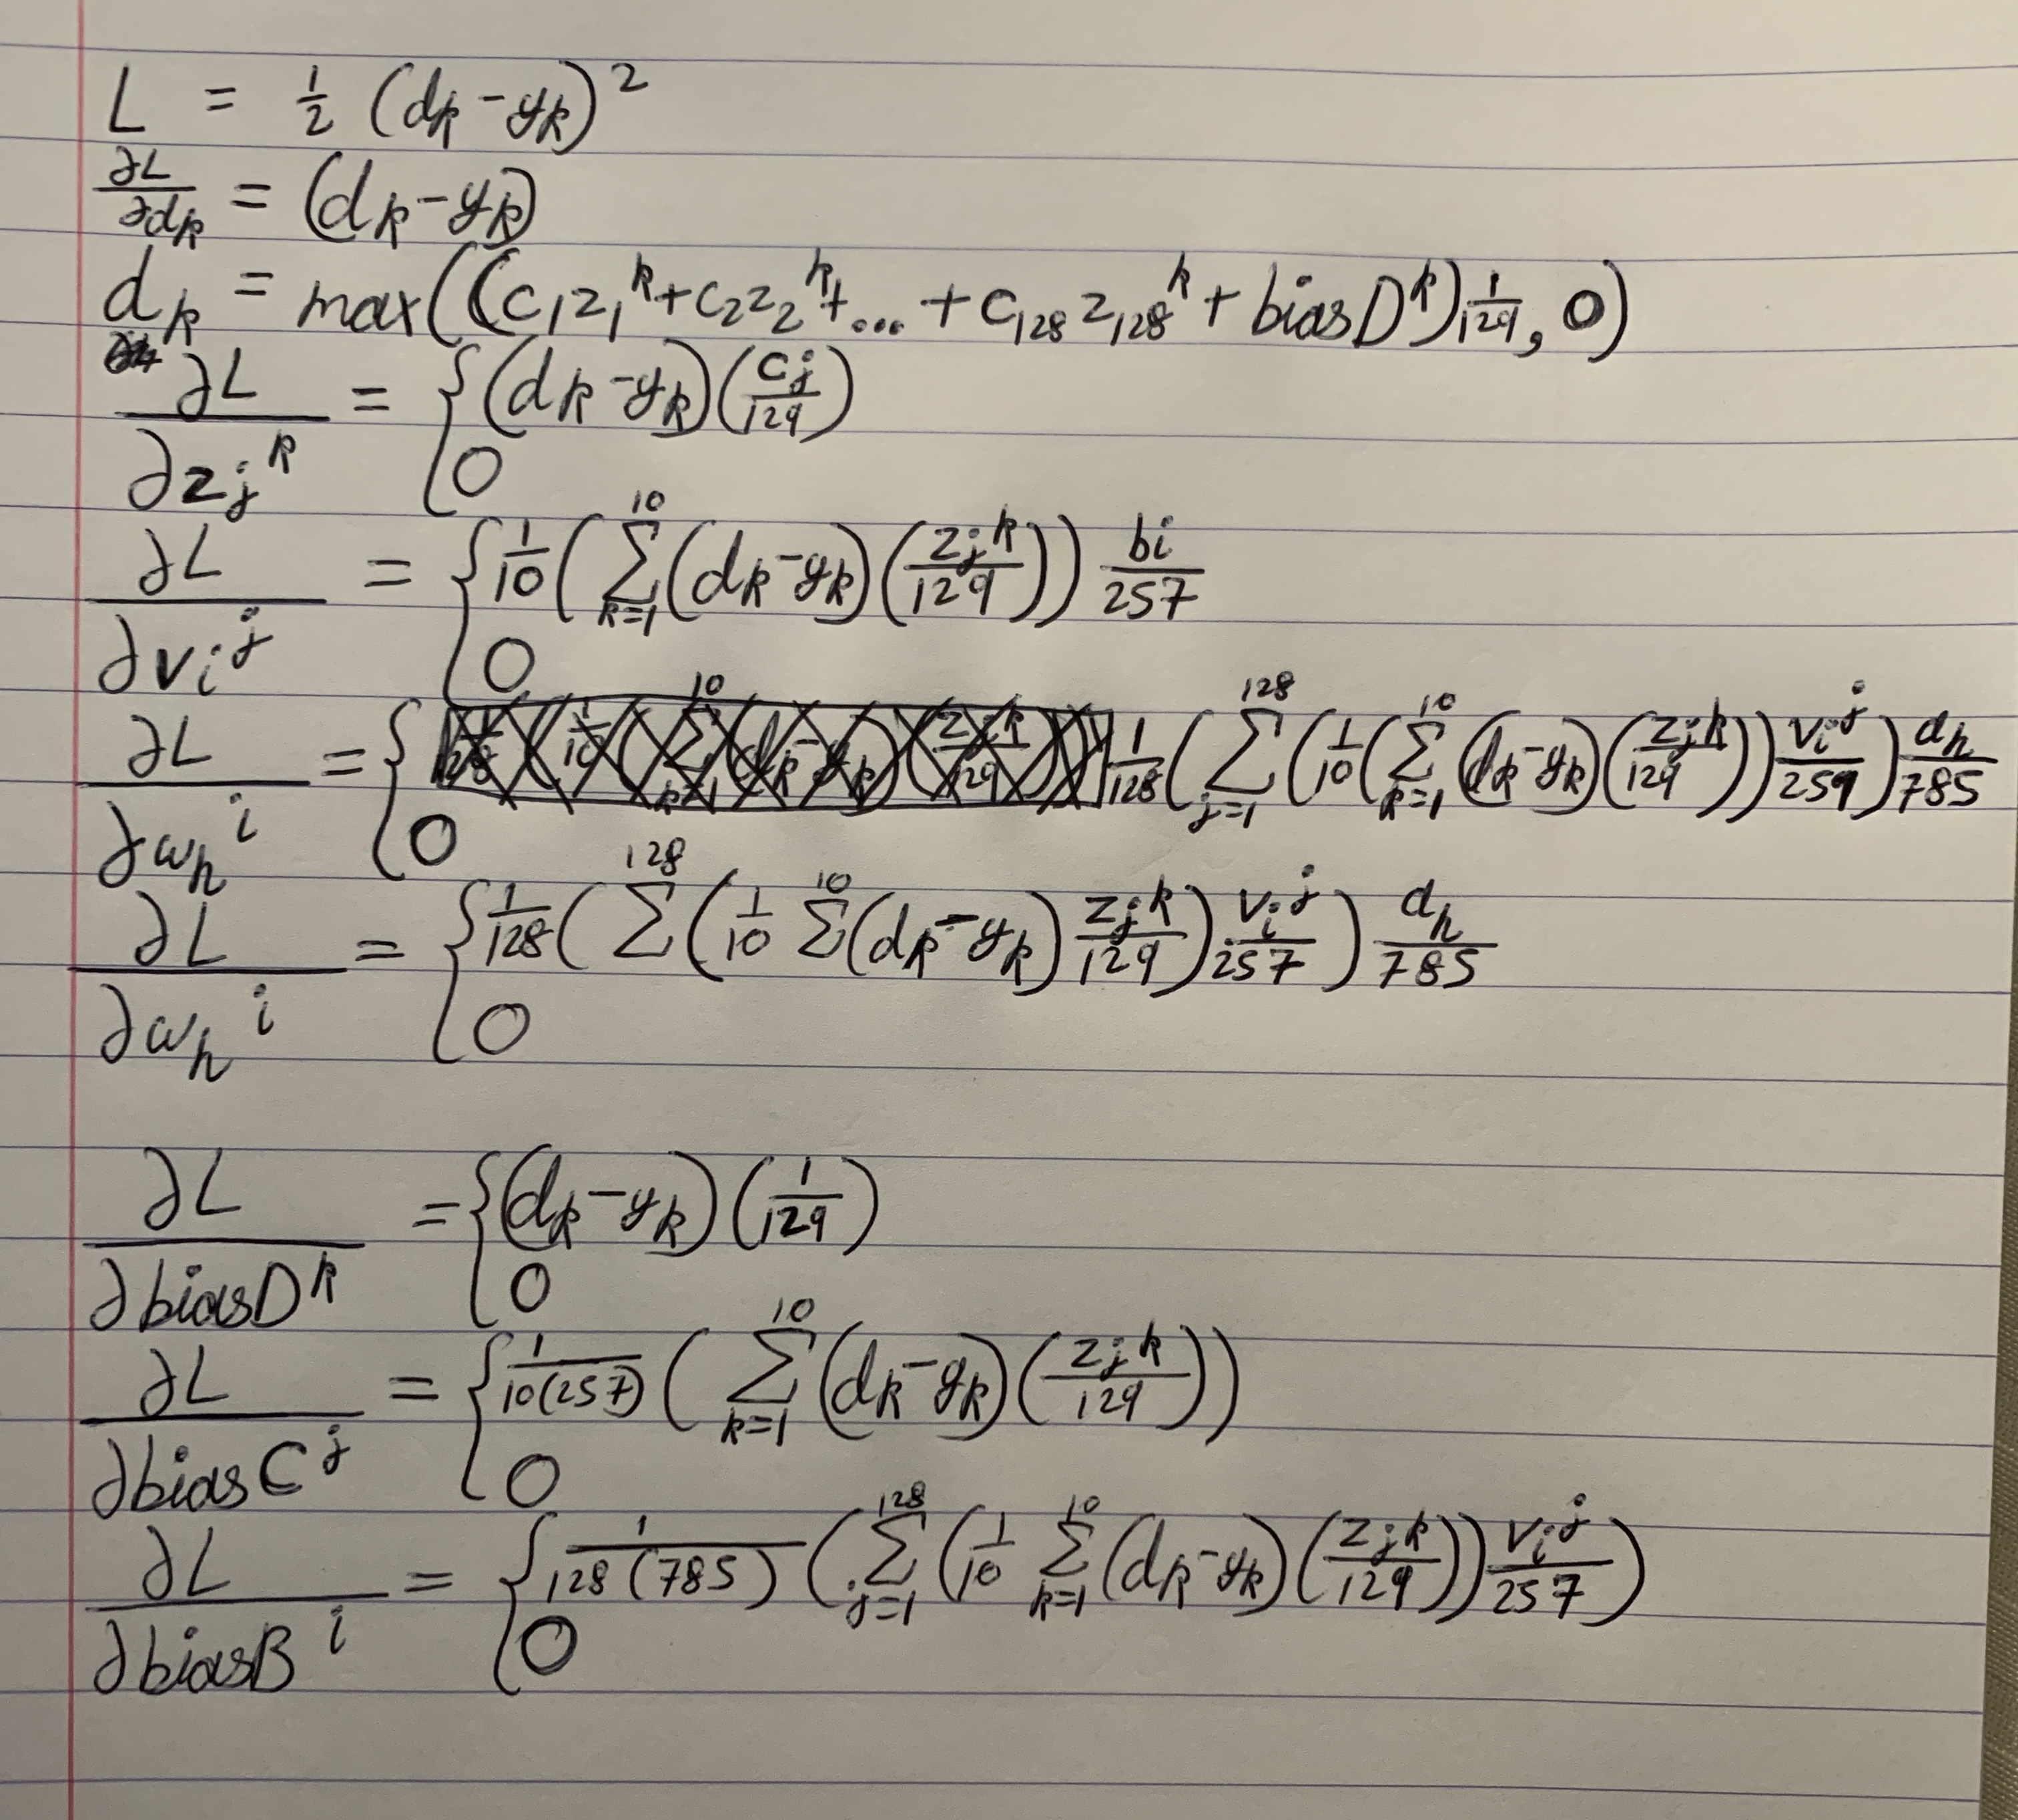 L = 1/2 (dk - yk)^2
∂L/∂dk = (dk - yk)
dk = max((c1z1^k + c2z2^k + ... + c128 z128^k + biasD^k) 1/129, 0)
∂L/∂zj^k = { (dk - yk)(cj/129)
0
∂L/∂vi^j = { 1/10 (∑_{k=1}^{10} (dk - yk)(zj^k/129)) bi/257
0
∂L/∂wh^i = { 1/128 (∑_{j=1}^{128} (1/10 (∑_{k=1}^{10} (dk - yk)(zj^k/129)) vi^j/259) dh/785
0
∂L/∂wh^i = { 1/128 (∑^{128} (1/10 ∑^{10} (dk - yk) zj^k/129) vi^j/257) dh/785
0
∂L/∂biasD^k = { (dk - yk)(1/129)
0
∂L/∂biasC^j = { 1/10(257) (∑_{k=1}^{10} (dk - yk)(zj^k/129))
0
∂L/∂biasB^i = { 1/128(785) (∑_{j=1}^{128} (1/10 ∑_{k=1}^{10} (dk - yk)(zj^k/129)) vi^j/257)
0